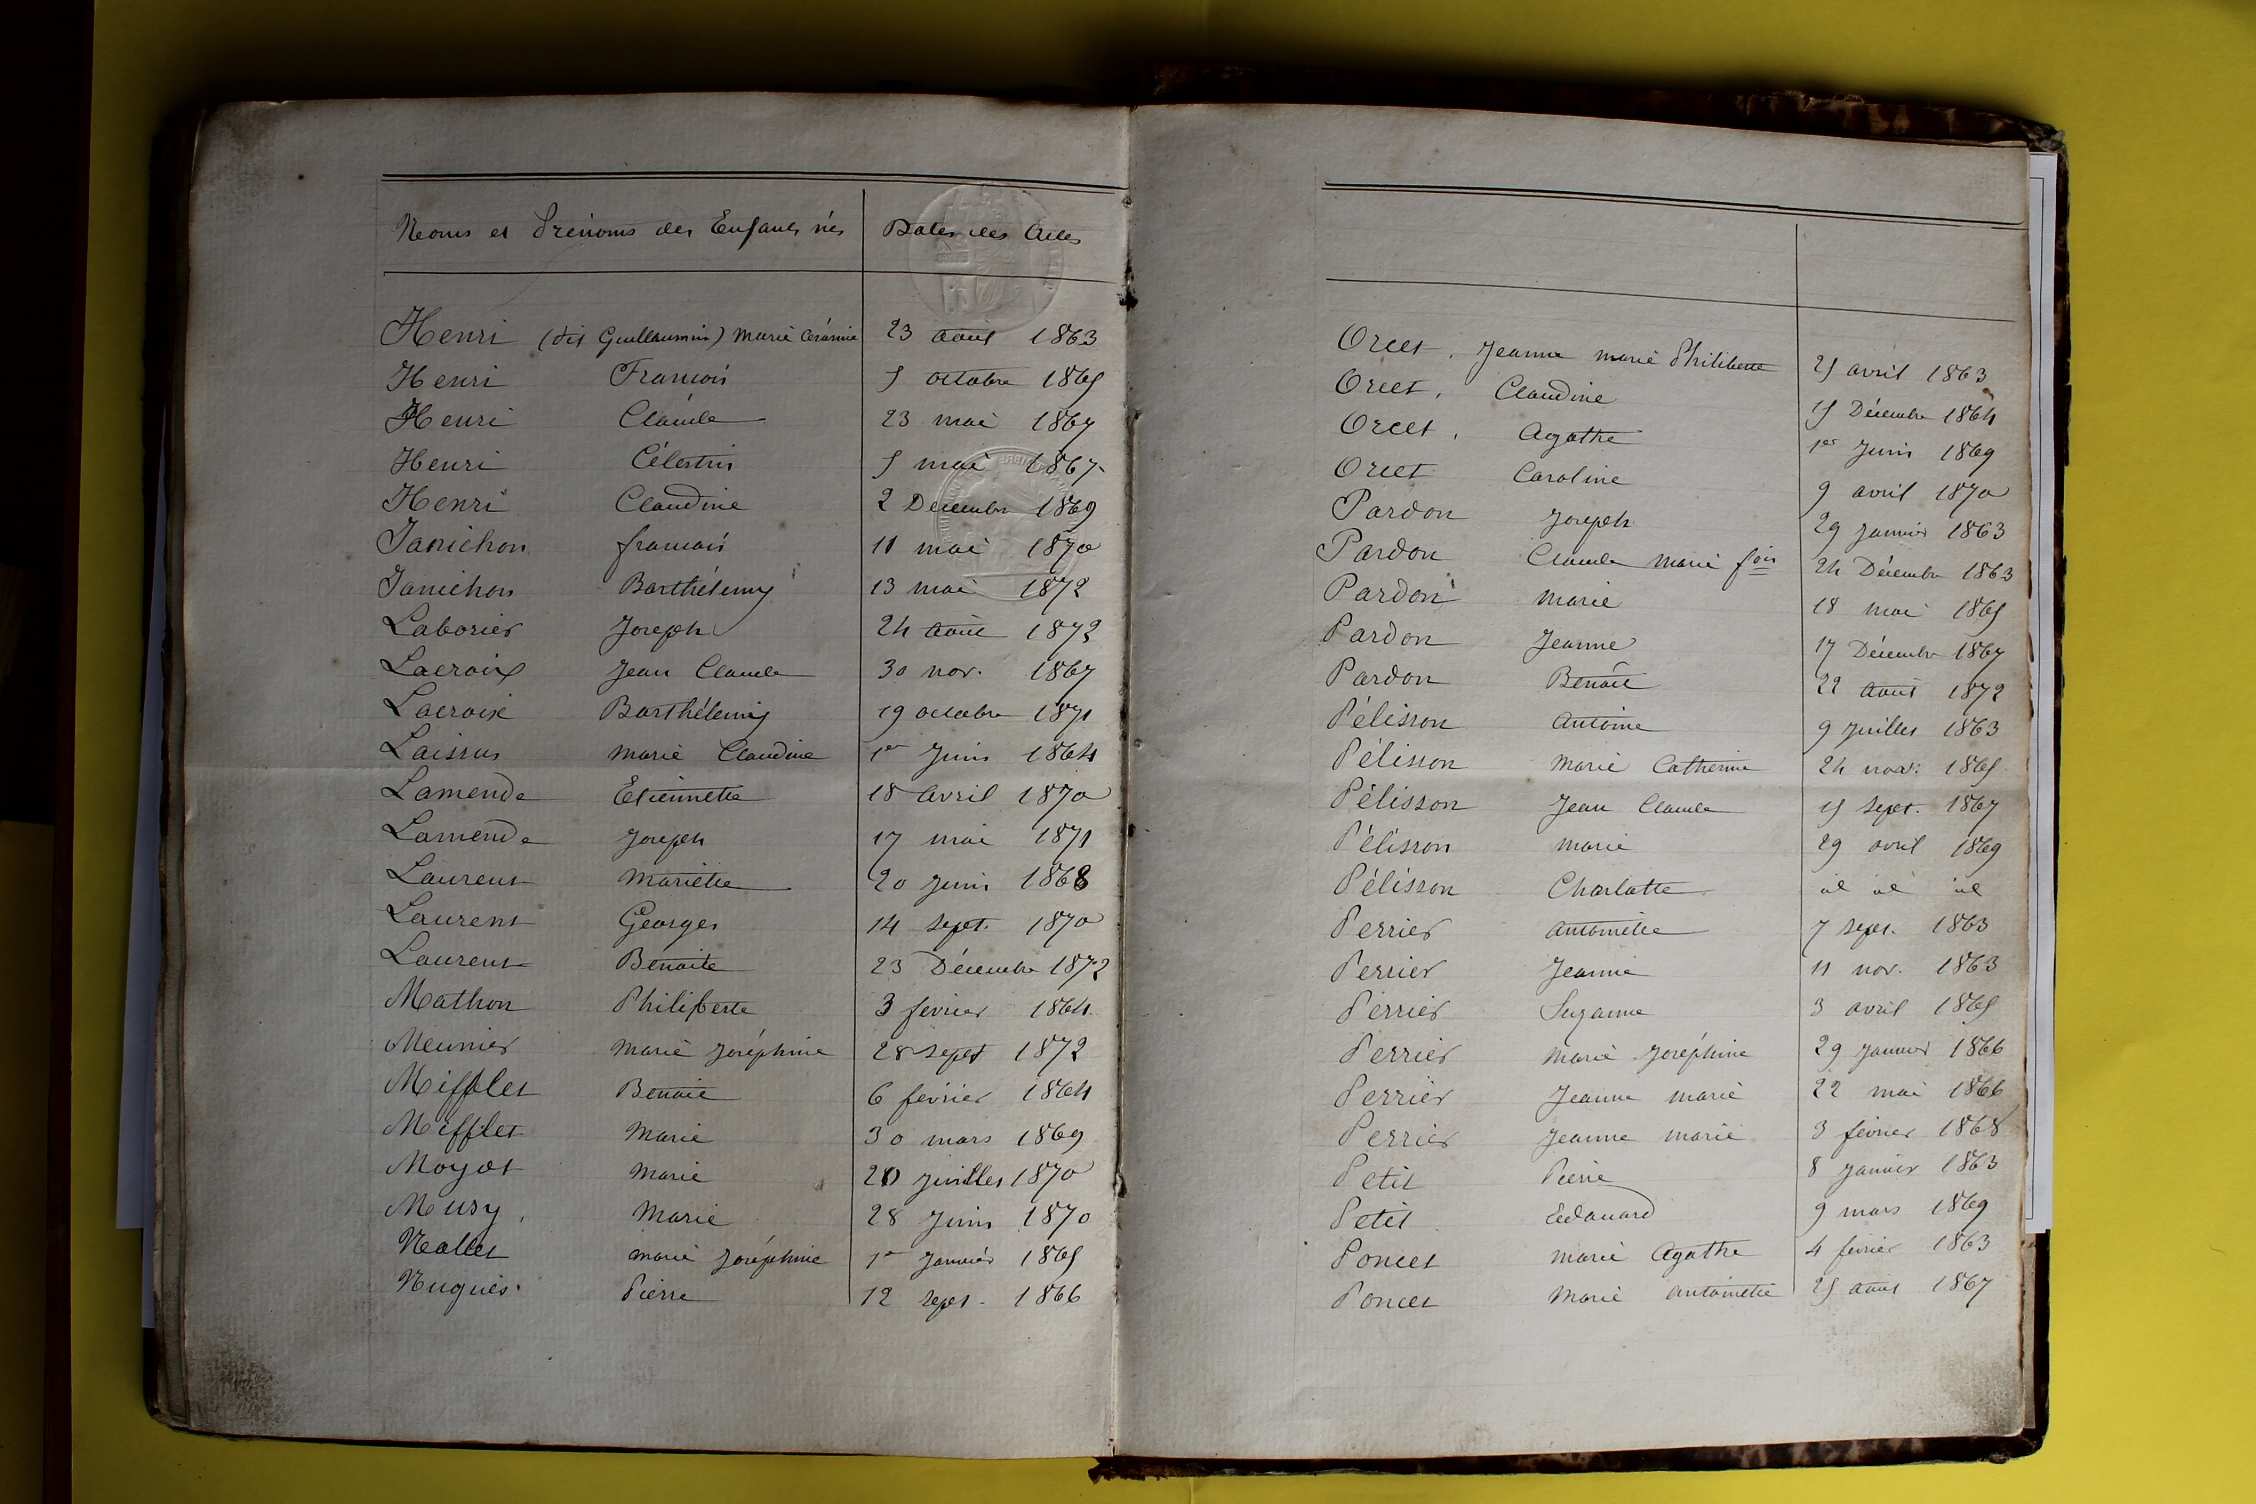 Noms et Prénoms des Enfants nés Dates des Actes
Henri (dit Guillaumin) Marie 23 août 1863
Henri François 5 octobre 1865
Henri Claude 23 mai 1867
Henri Célestin 5 mai 1867
Henri Claudine 2 Décembre 1869
Janichon françois 11 mai 1870
Janichon Barthélemy 13 mai 1872
Laborier Joseph 24 août 1872
Lacroix Jean Claude 30 nov. 1867
Lacroix Barthélemy 19 octobre 1871
Laissus Marie Claudine 1er Juin 1864
Lamende Etiennette 18 avril 1870
Lamende Joseph 17 mai 1871
Laurent Mariette 20 Juin 1868
Laurent Georges 14 sept. 1870
Laurent Benoite 23 Décembre 1872
Mathon Philiberte 3 février 1864
Meunier Marie Joséphine 28 sept 1872
Mifflet Benoit 6 février 1864
Mifflet Marie 30 mars 1869
Moyot Marie 20 Juillet 1870
Musy, Marie 28 Juin 1870
Nallet marie Joséphine 1er Janvier 1865
Nuguès Pierre 12 sept. 1866
Orcet, Jeanne marie Philiberte 25 avril 1863
Orcet, Claudine 15 Décembre 1864
Orcet, Agathe 1er Juin 1869
Orcet Caroline 9 avril 1870
Pardon Joseph 29 Janvier 1863
Pardon Claude Marie fois 24 Décembre 1863
Pardon Marie 18 mai 1865
Pardon Jeanne 17 Décembre 1867
Pardon Benoît 22 août 1872
Pélisson Antoine 9 Juillet 1863
Pélisson Marie Catherine 24 nov. 1865
Pélisson Jean Claude 15 sept. 1867
Pélisson Marie 29 avril 1869
Pélisson Charlotte id id id
Perrier Antoinette 7 sept. 1863
Perrier Jeanne 11 nov. 1863
Perrier Suzanne 3 avril 1865
Perrier Marie Joséphine 29 Janvier 1866
Perrier Jeanne marie 22 mai 1866
Perrier Jeanne marie 3 février 1868
Petit Pierre 8 Janvier 1863
Petit Edouard 9 mars 1869
Poncet Marie Agathe 4 février 1863
Poncet Marie Antoinette 25 août 1867